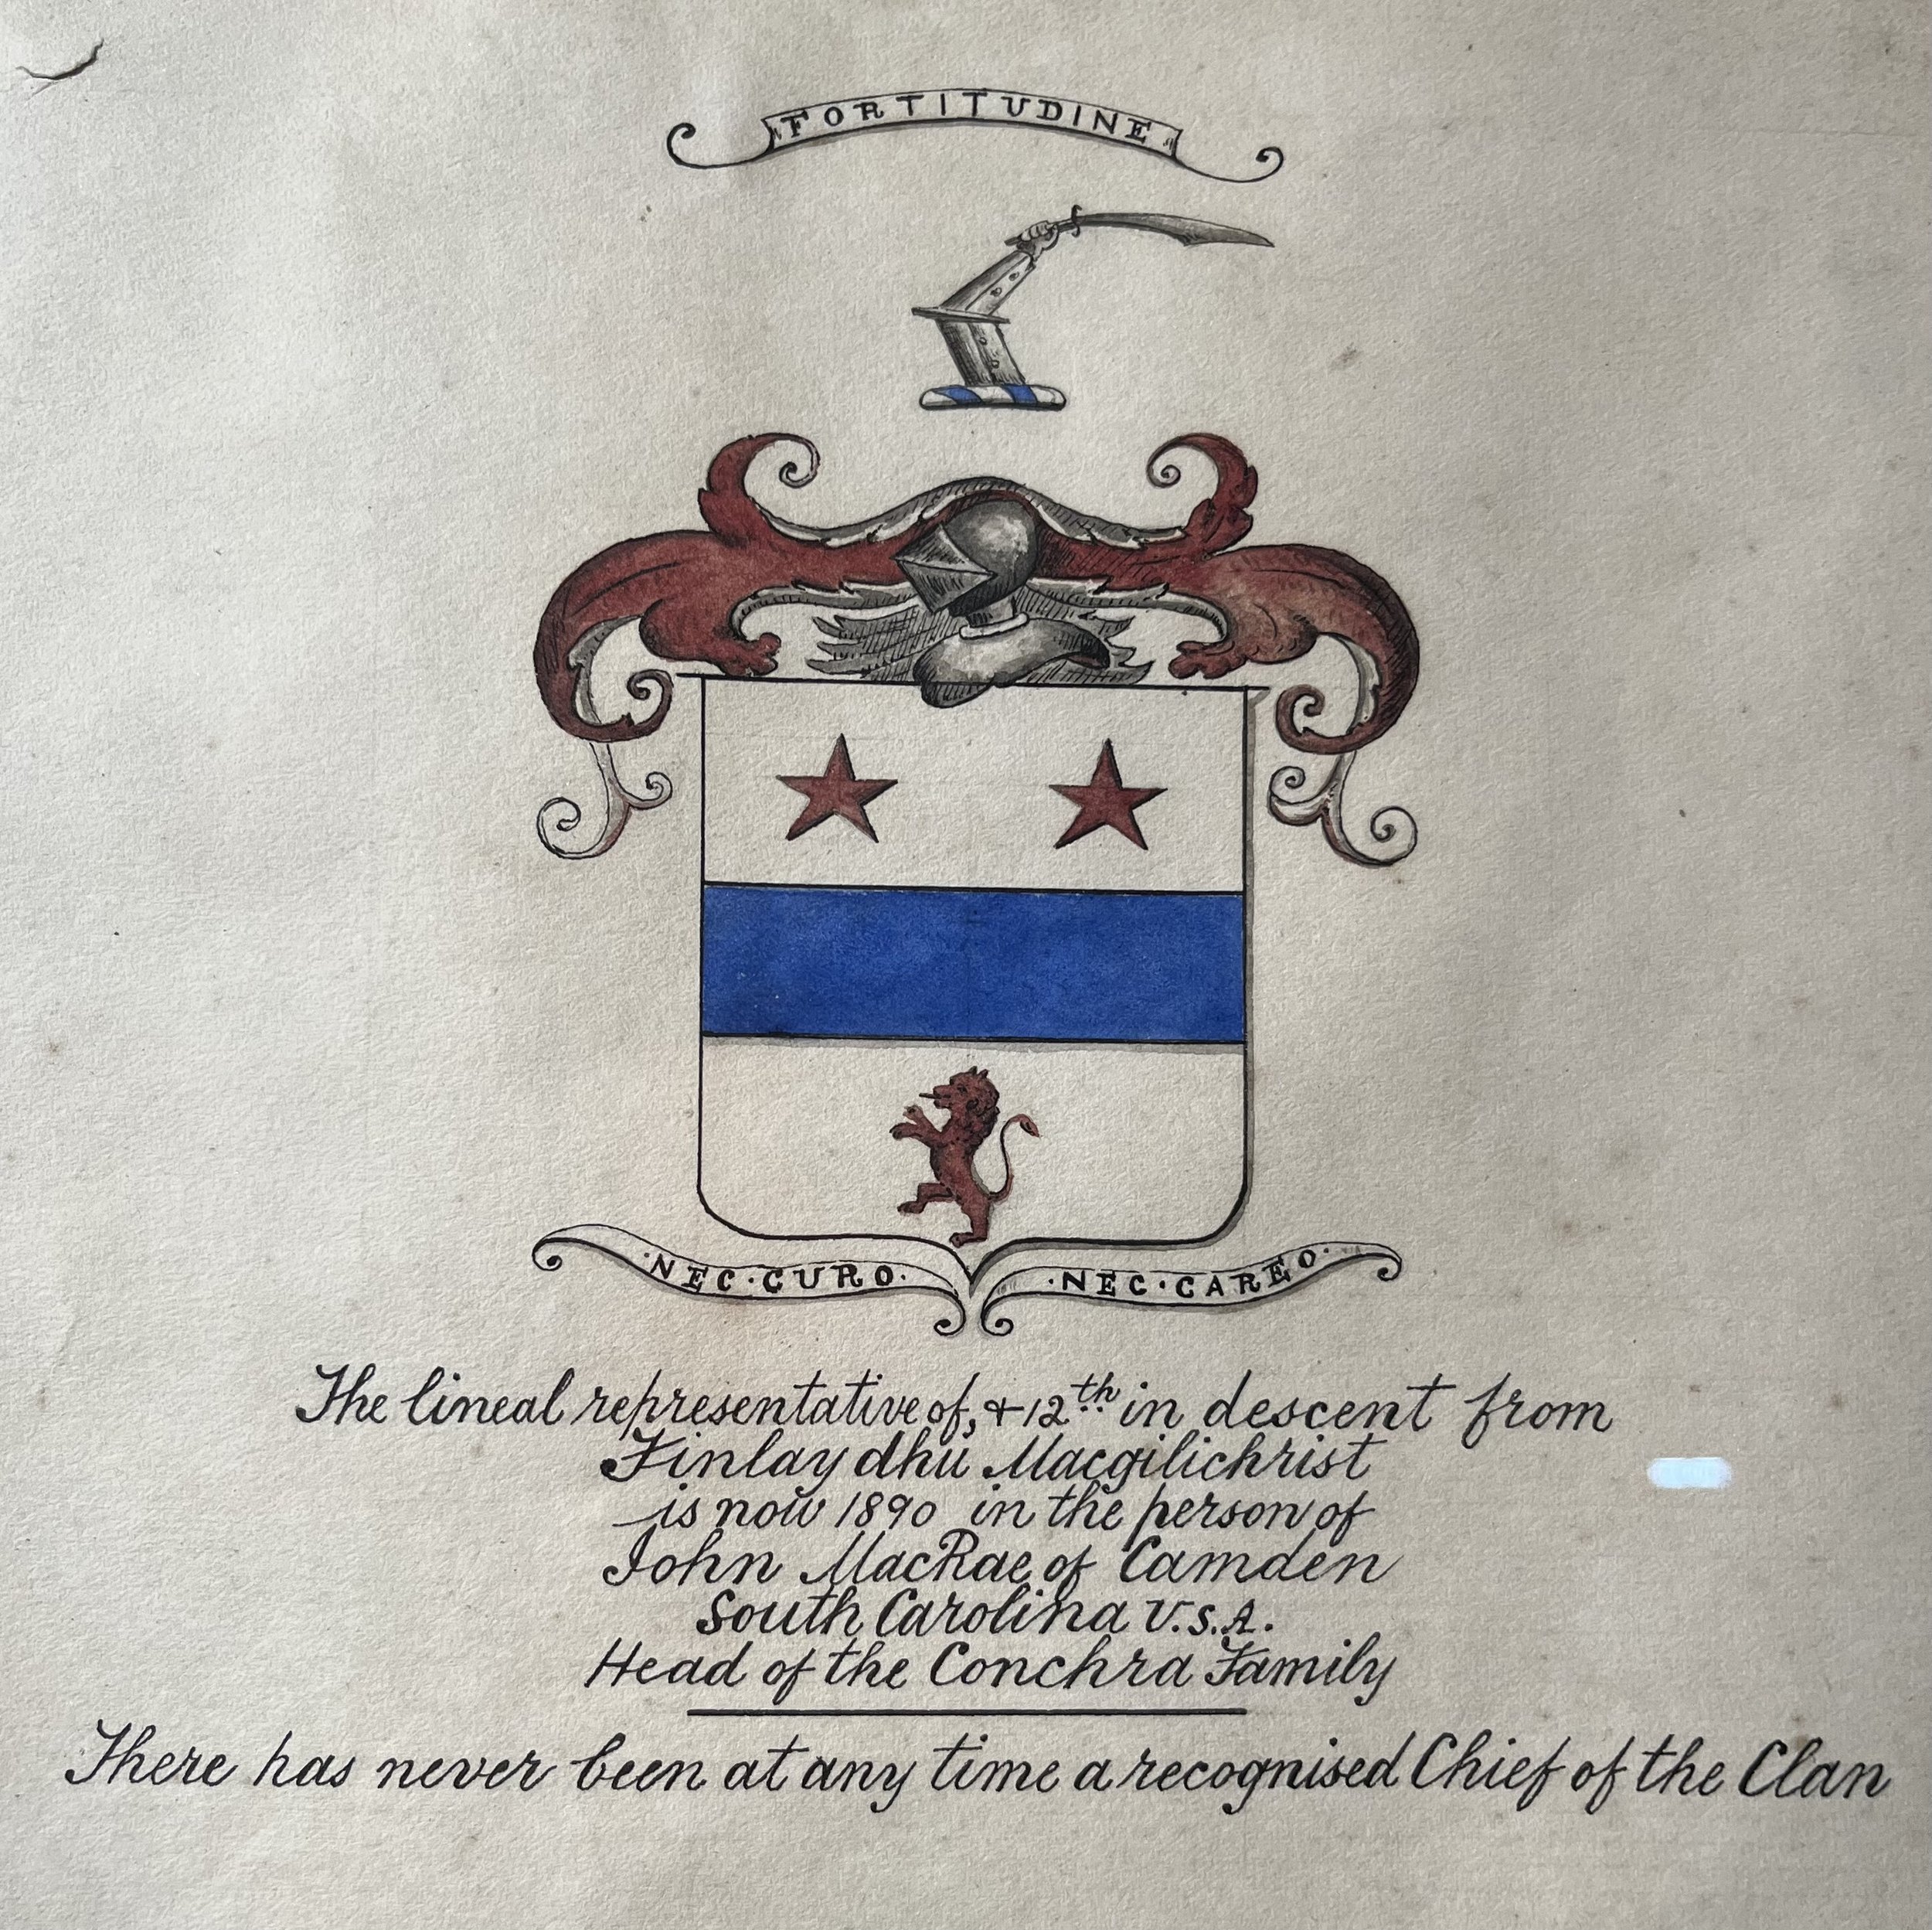 FORTITUDINE
·NEC·CURO· ·NEC·CAREO·
The lineal representative of, & 12th in descent from
Finlay dhu Macgilichrist
is now 1890 in the person of
John MacRae of Camden
South Carolina U.S.A.
Head of the Conchra Family
There has never been at any time a recognised Chief of the Clan